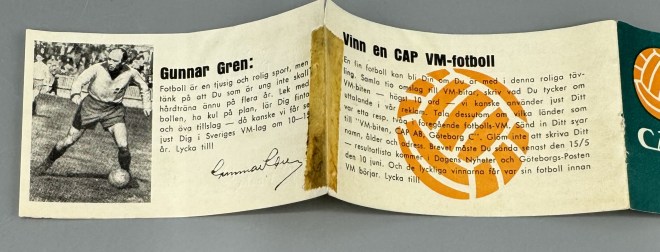 Gunnar Gren:
Fotboll är en tjusig och rolig sport, men
tänk på att Du som är ung inte skall
hårdträna ännu på flera år. Lek med
bollen, ha kul på plan, lär Dig finta
och öva tillslag — då kanske vi får se
just Dig i Sveriges VM-lag om 10–15
år. Lycka till!
Gunnar Gren
Vinn en CAP VM-fotboll
En fin fotboll kan bli Din om Du är med i denna roliga täv-
ling. Samla tio omslag till VM-bitar, skriv vad Du tycker om
VM-biten — högst 10 ord — vi kanske använder just Ditt
uttalande i vår reklam. Tala dessutom om vilka länder som
var etta resp. tvåa i föregående fotbolls-VM. Sänd in Ditt svar
till "VM-biten, CAP AB, Göteborg C". Glöm inte att skriva Ditt
namn, ålder och adress. Brevet måste Du sända senast den 15/5
— resultatlista kommer i Dagens Nyheter och Göteborgs-Posten
den 10 juni. Och de lyckliga vinnarna får var sin fotboll innan
VM börjar. Lycka till!